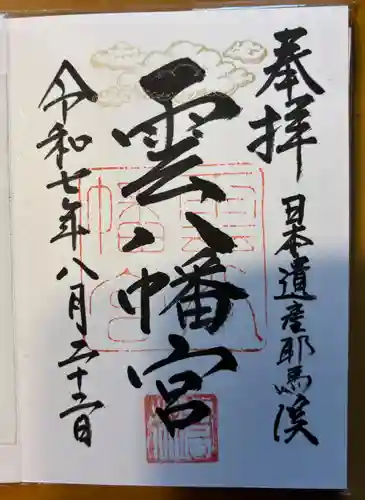 奉拝
日本遺産耶馬渓
雲八幡宮
令和七年八月二十二日